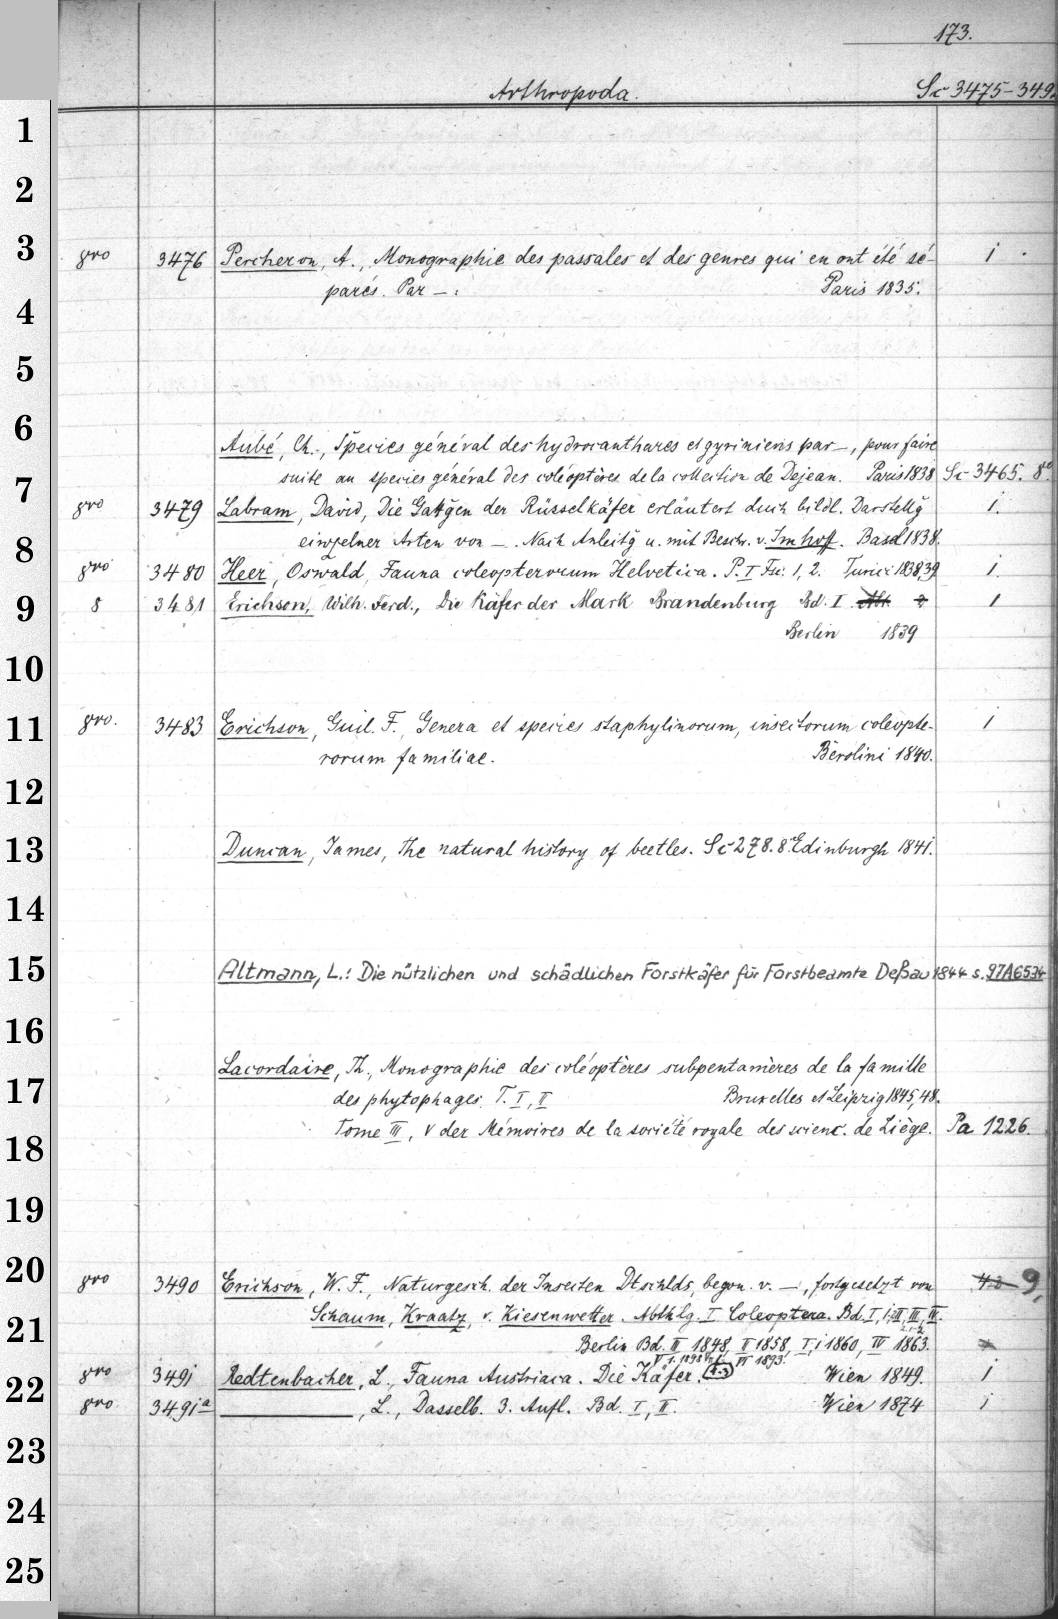 173.
Arthropoda. Sc 3475-349
1
2
3 8vo 3476 Percheron, A., Monographie des passales et des genres qui en ont été sé- 1
parés. Par —. Paris 1835.
4
5
6
Aubé, Ch., Species général des hydrocanthares et gyriniens par —, pour faire
suite au species général des coléoptères de la collection de Dejean. Paris 1838 Sc 3465. 8°.
7 8vo 3479 Labram, David, Die Gattgen der Rüsselkäfer erläutert durch bildl. Darstellg 1.
8 einzelner Arten von —. Nach Anleitg u. mit Beschr. v. Imhoff. Basel 1838.
8vo 3480 Heer, Oswald, Fauna coleopterorum Helvetica. P. I Fsc. 1, 2. Turici 1838,39 1.
9 8 3481 Erichson, Wilh. Ferd., Die Käfer der Mark Brandenburg Bd. I Abt. 2 1
Berlin 1839
10
11 8vo. 3483 Erichson, Guil. F., Genera et species staphylinorum, insectorum coleopte- 1
rorum familiae. Berolini 1840.
12
13 Duncan, James, The natural history of beetles. Sc 278. 8° Edinburgh 1841.
14
15 Altmann, L.: Die nützlichen und schädlichen Forstkäfer für Forstbeamte Deßau 1844 s. 97A6534
16
Lacordaire, Th., Monographie des coléoptères subpentamères de la famille
17 des phytophages. T. I, II Bruxelles et Leipzig 1845,48.
18 Tome III, V der Mémoires de la société royale des scienc. de Liège. Pa 1226.
19
20 8vo 3490 Erichson, W. F., Naturgesch. der Insecten Dtschlds, begon. v. —, fortgesetzt von 9,
21 Schaum, Kraatz, v. Kiesenwetter. Abthlg. I Coleoptera. Bd. I, 1, II, III, IV.
Berlin Bd. III 1848, II 1858, I, 1 1860, IV 1863.
VI 1893.
22 8vo 3491 Redtenbacher, L., Fauna Austriaca. Die Käfer. Wien 1849. 1
8vo 3491a ———, L., Dasselb. 3. Aufl. Bd. I, II. Wien 1874 1
23
24
25